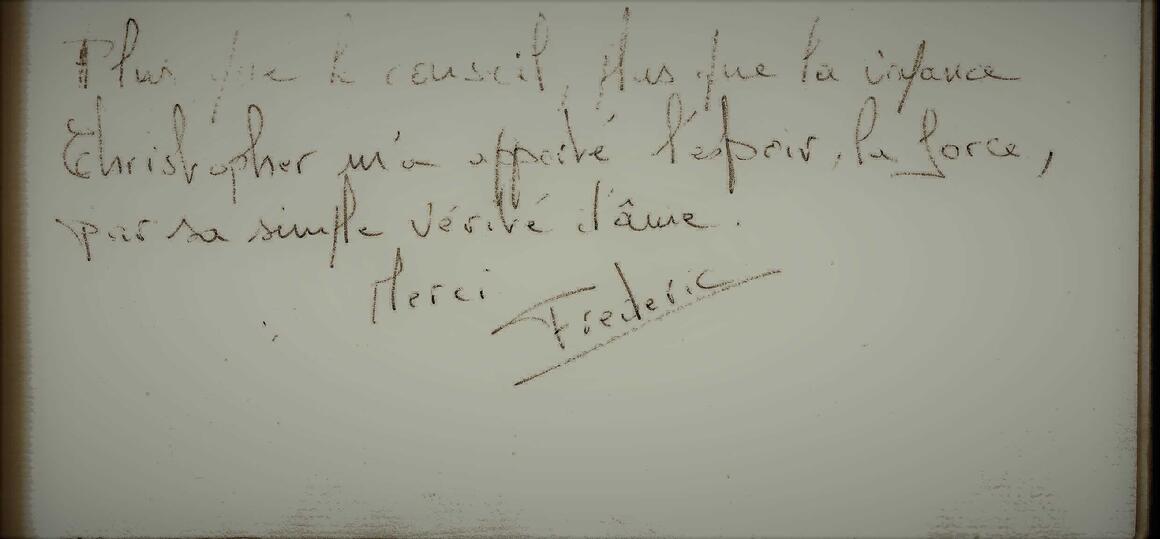 Plus que le conseil, plus que la
Christopher m'a apporté l'espoir, la force,
par sa simple vérité d'âme.
Merci
Frederic